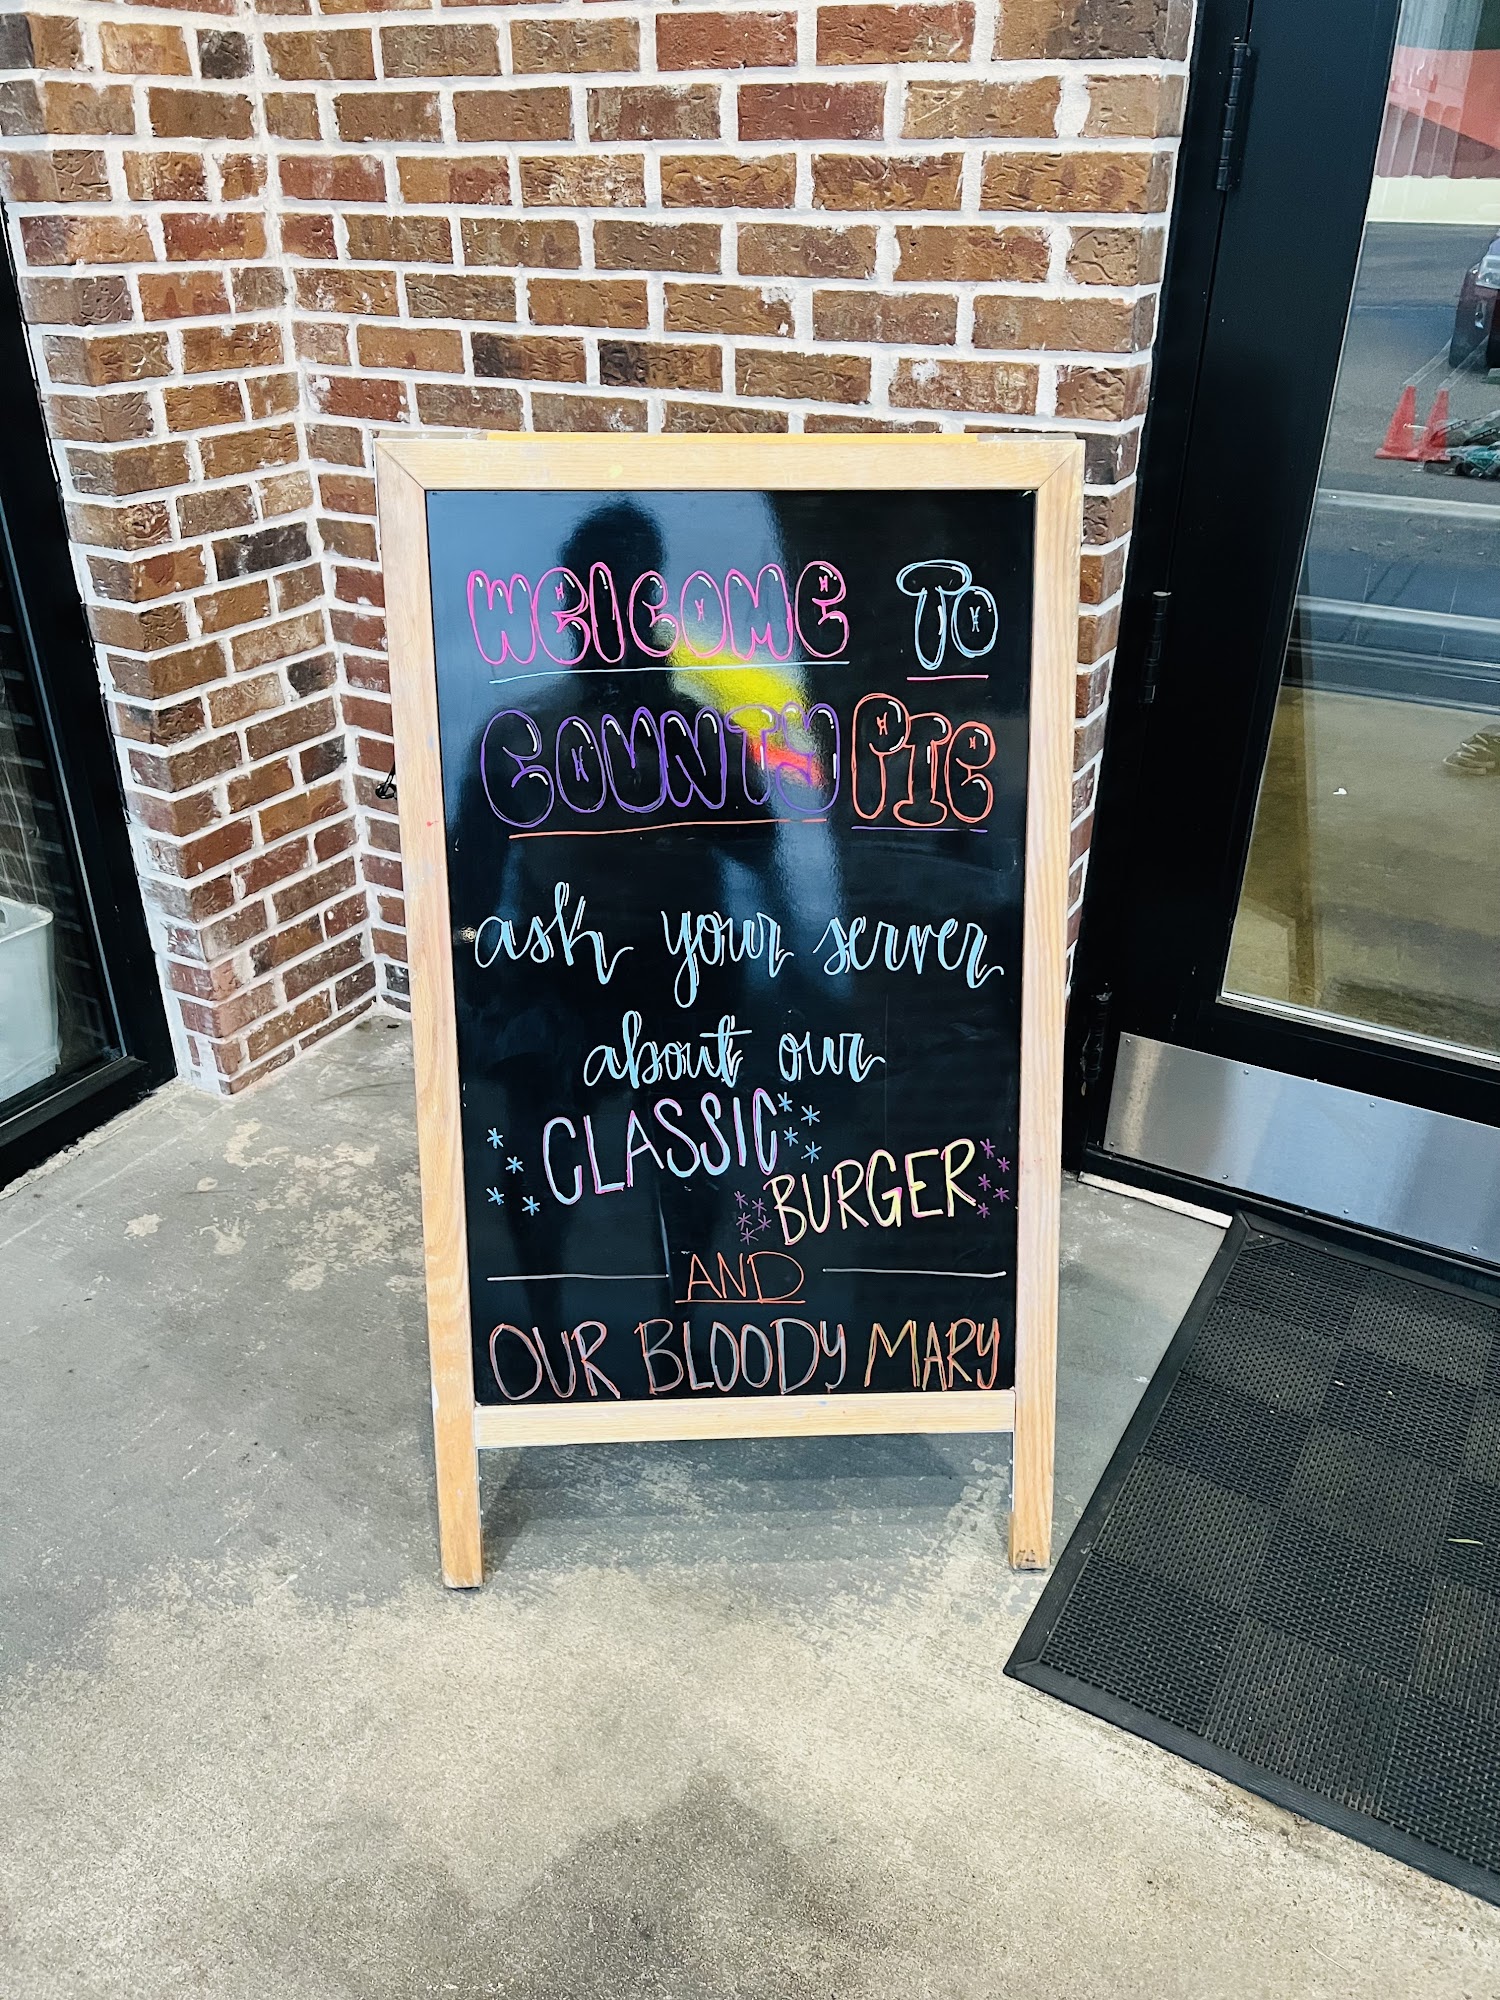 WELCOME TO
COUNTY PIE
ask your server
about our
CLASSIC
BURGER
AND
OUR BLOODY MARY